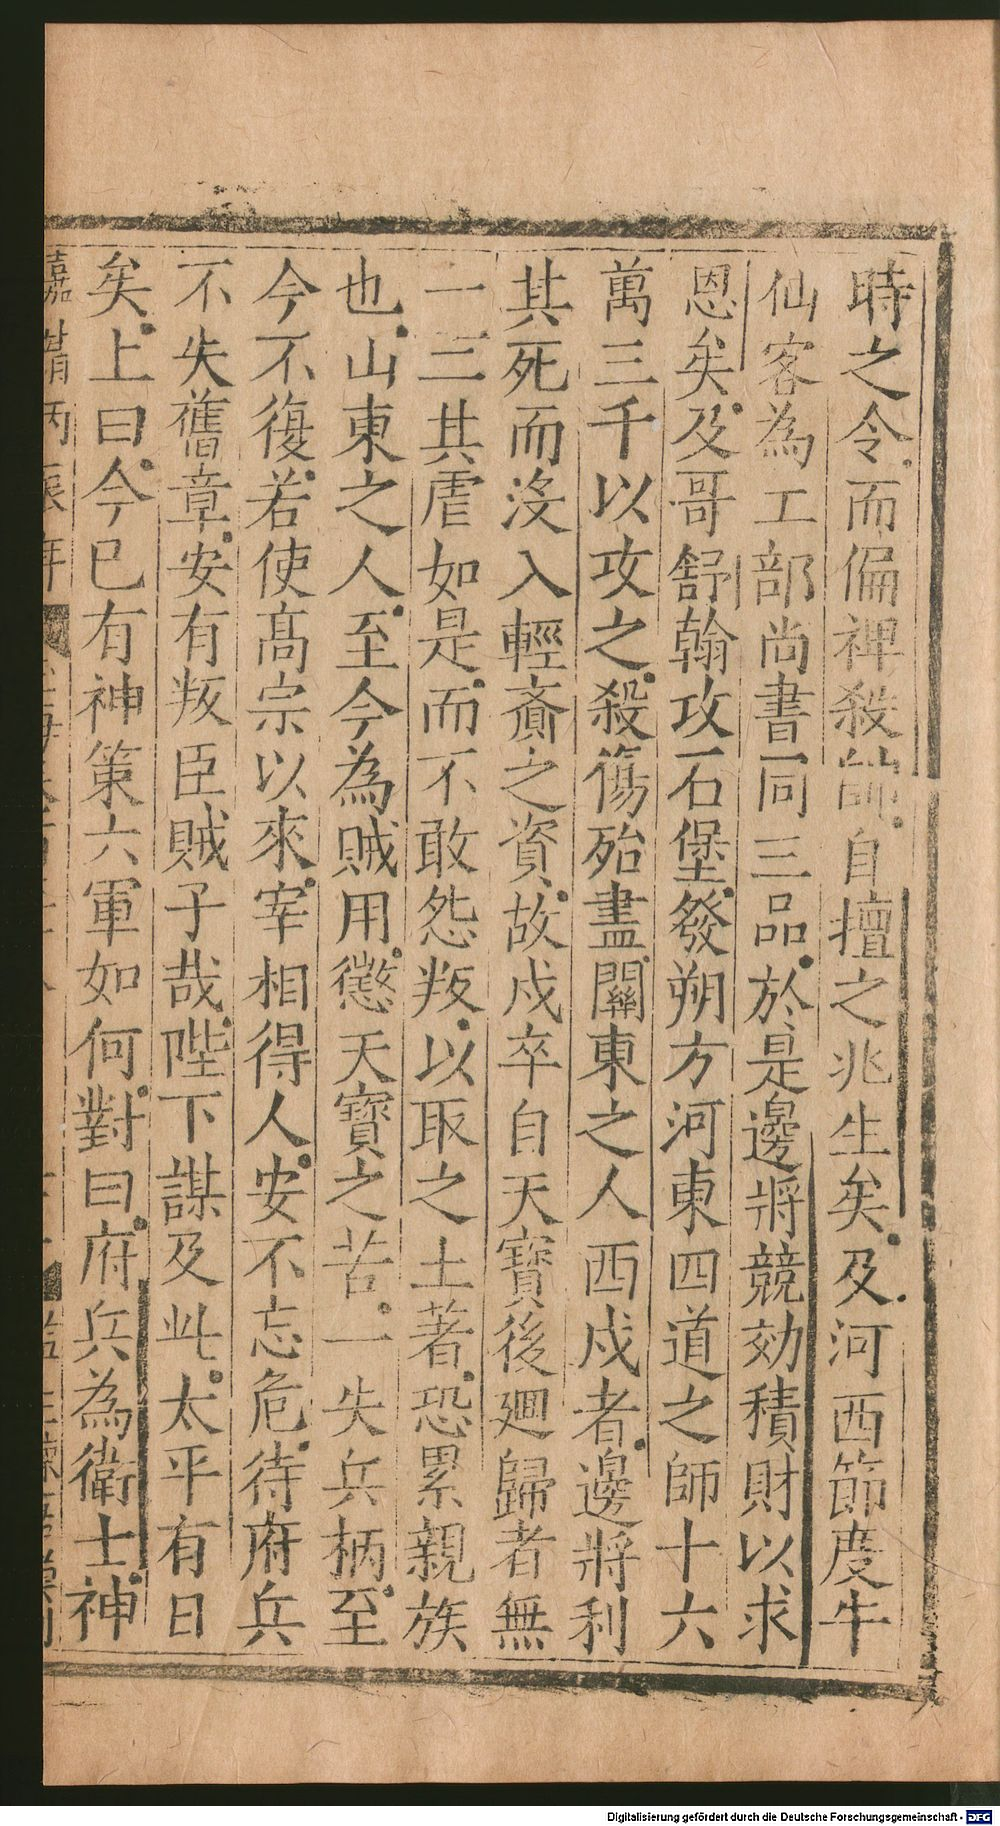 時之令而偏裨殺帥自擅之兆生矣及河西節度牛
仙客為工部尚書同三品於是邊將競効積財以求
恩矣及哥舒翰攻石堡發朔方河東四道之師十六
萬三千以攻之殺傷殆盡關東之人西戍者邊將利
其死而沒入輕齎之資故戍卒自天寶後廻歸者無
一二其虐如是而不敢怨叛以取之土著恐累親族
也山東之人至今為賊用懲天寶之苦一失兵柄至
今不復若使高宗以來宰相得人安不忘危待府兵
不失舊章安有叛臣賊子哉陛下謀及此太平有日
矣上曰今已有神策六軍如何對曰府兵為衛士神
嘉靖丙辰年
Digitalisierung gefördert durch die Deutsche Forschungsgemeinschaft - DFG